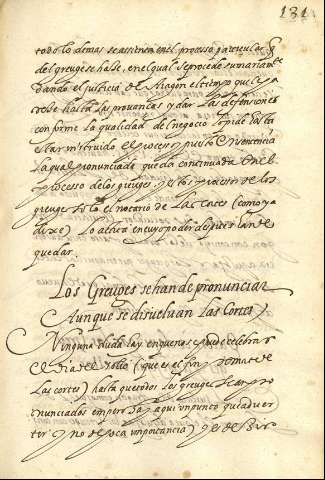 131
todo lo demas se assienta en el processo particular q̃
del greuge se haze, en el qual se procede sumariamẽte
dando el justicia de Aragon el tiempo que le pa
reçe hasta las provanças y dar las defensiones
conforme la qualidad del negocio lo pide hasta
estar instruido el processo y puesto en sentencia
la qual pronunciada queda continuada en el
processo de los greuges, y estos processos de los
greuges solo el notario de las Cortes (como ya
dixe) lo actua en cuyo poder despues han de
quedar.
Los Greuges se han de pronunciar
Aunque se disuelvan las Cortes
Ninguna duda hay en que no se puede celebrar
el dia del solio (que es el fin y remate de
las cortes) hasta que todos los greuges sean pro
nunciados empero hay aqui un punto que adver
tir (y no de poca importancia) y es de